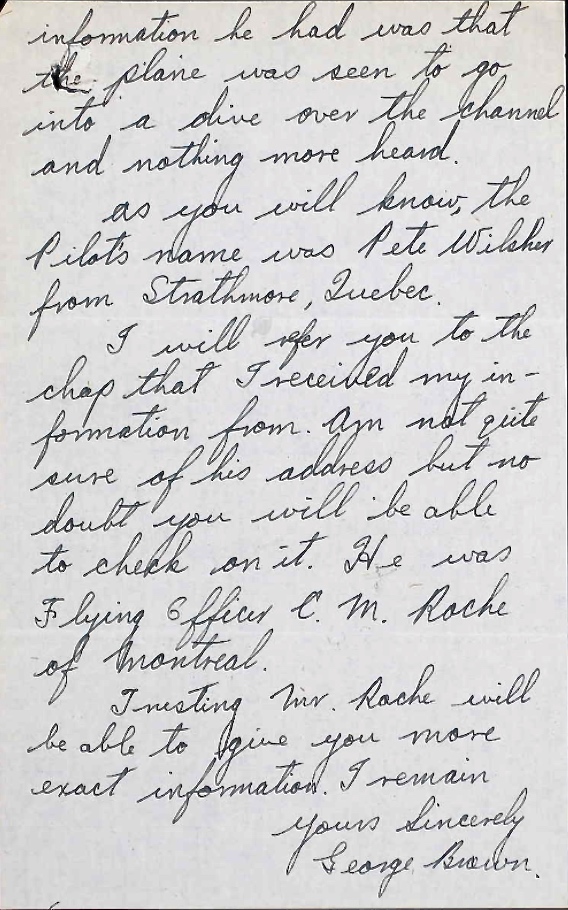 information he had was that
the plane was seen to go
into a dive over the channel
and nothing more heard.
as you will know, the
Pilot's name was Pete Wilsher
from Strathmore, Quebec.
I will refer you to the
chap that I received my in-
formation from. Am not quite
sure of his address but no
doubt you will be able
to check on it. He was
Flying Officer C. M. Roche
of Montreal.
Trusting Mr. Roche will
be able to give you more
exact information. I remain
yours Sincerely
George Brown.